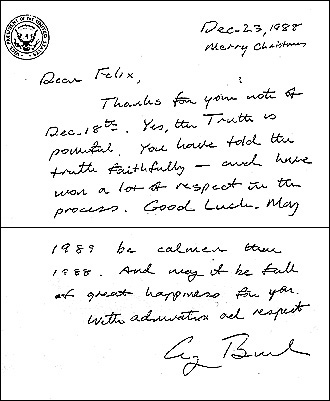 Dec. 23, 1988
Merry Christmas
Dear Felix,
Thanks for your note of
Dec. 18th. Yes, the Truth is
powerful. You have told the
truth faithfully — and have
won a lot of respect in the
process. Good Luck. May
1989 be calmer than
1988. And may it be full
of great happiness for you.
With admiration and respect